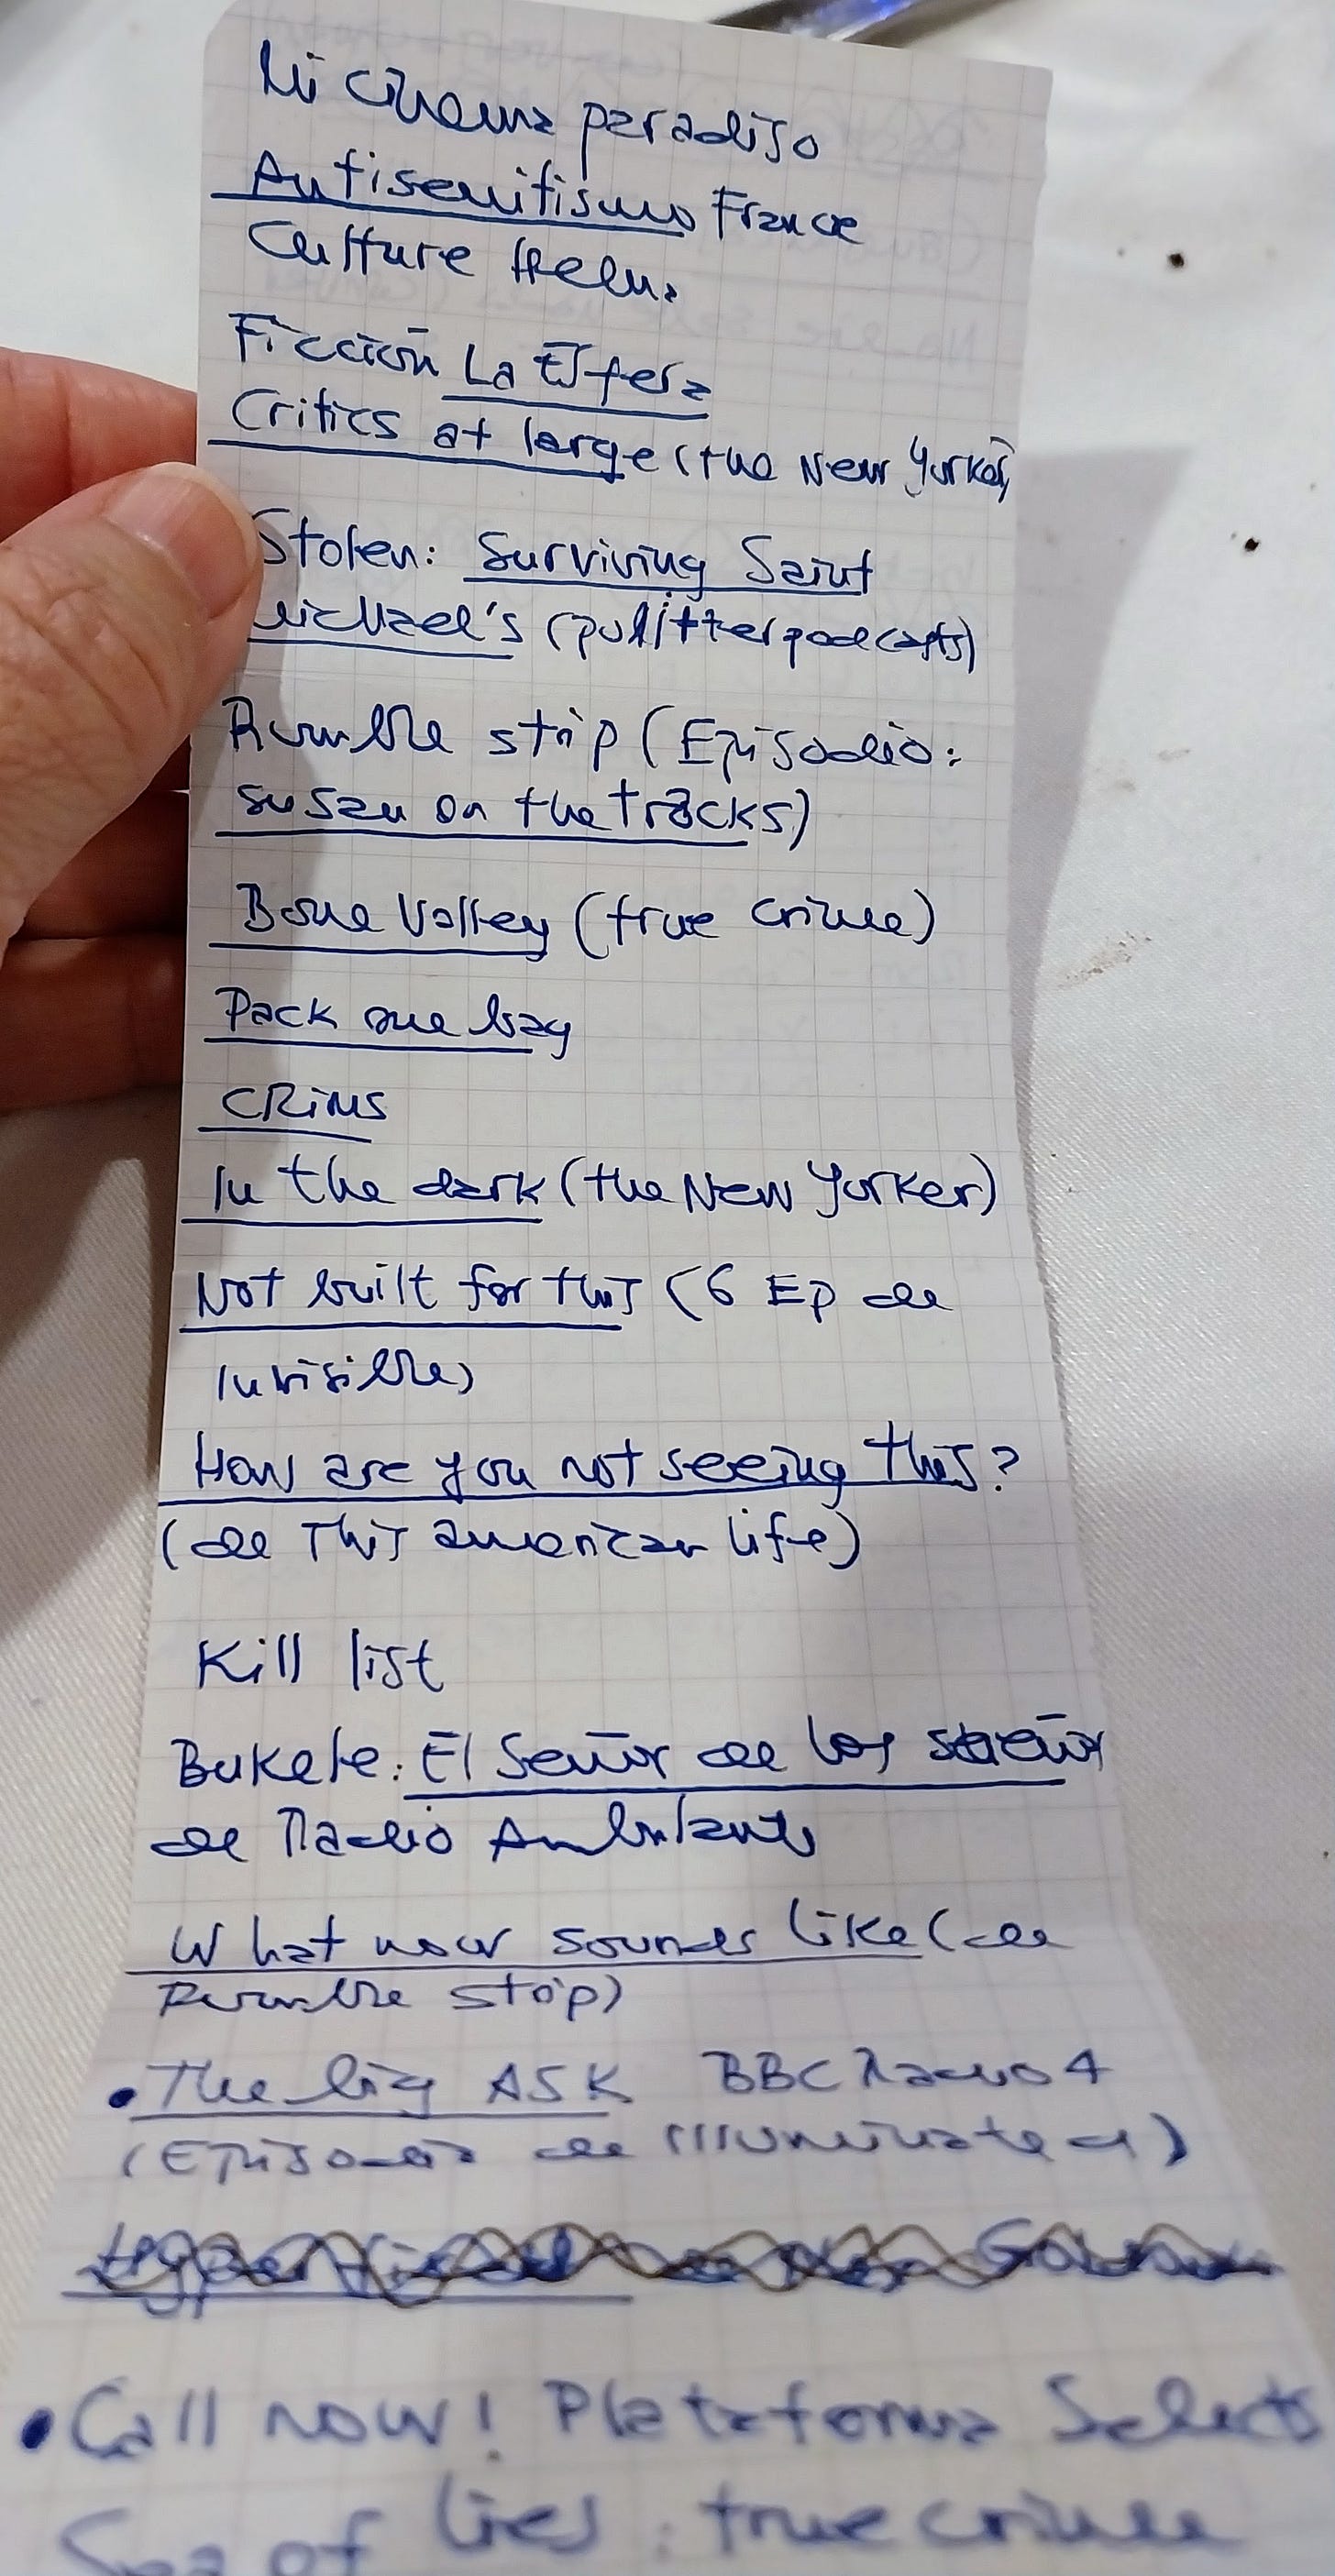 Mi Cinema paradiso
Antisemitismo France
Culture
Ficción La Esfera
Critics at large (the New Yorker)
Stolen: Surviving Saint
Michael's (pulitter podcasts)
Rumble strip (Episodio:
Susan on the tracks)
Bone Valley (true crime)
Pack one bag
CRIMS
In the dark (the New Yorker)
Not built for this (6 Ep de
Invisible)
How are you not seeing this?
(de This american life)
Kill list
Bukele: El Señor de los
de Radio Ambulante
What now sounds like (de
Rumble strip)
• The big ASK BBC Radio 4
(Episodio de Illuminated)
• Call now! Plataforma Selects
Sea of lies: true crime